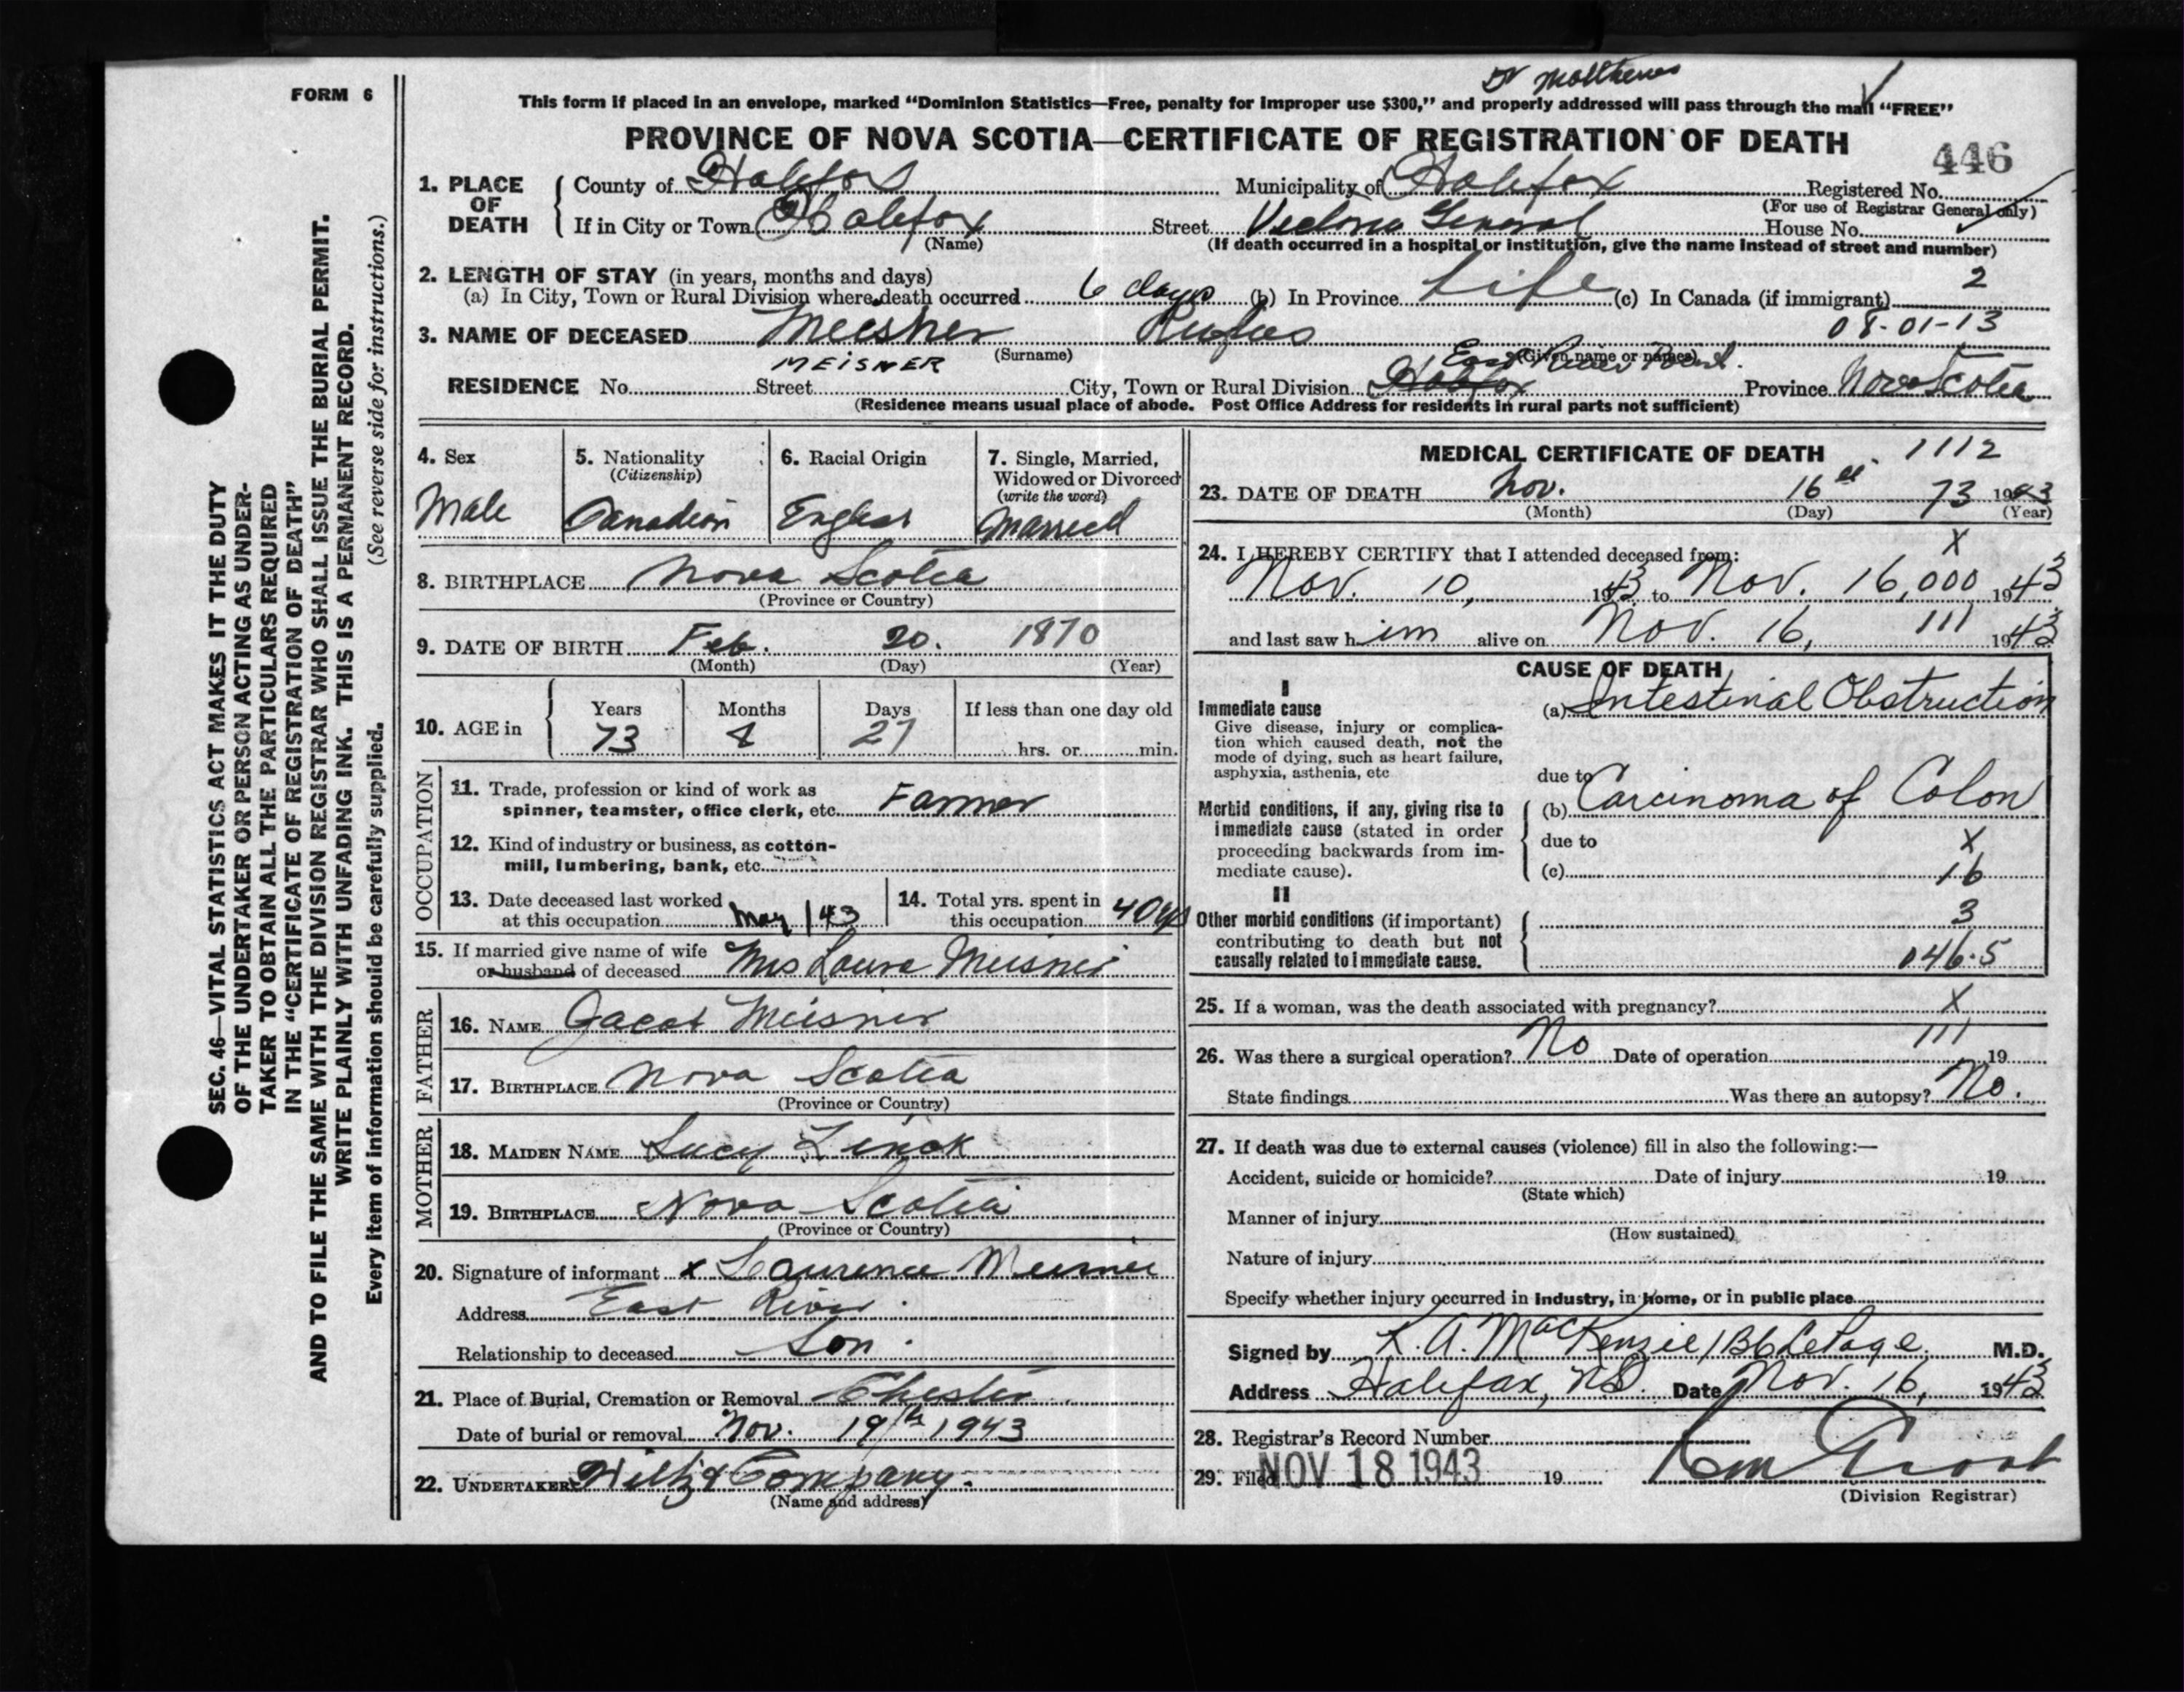 Dr Matthews
FORM 6
This form if placed in an envelope, marked “Dominion Statistics—Free, penalty for improper use $300,” and properly addressed will pass through the mail “FREE”
PROVINCE OF NOVA SCOTIA—CERTIFICATE OF REGISTRATION OF DEATH
446
1. PLACE OF DEATH County of Halifax Municipality of Halifax Registered No.
(For use of Registrar General only)
If in City or Town Halifax Street Victoria General House No.
(Name) (If death occurred in a hospital or institution, give the name instead of street and number)
2. LENGTH OF STAY (in years, months and days) 2
(a) In City, Town or Rural Division where death occurred 6 days (b) In Province Life (c) In Canada (if immigrant)
3. NAME OF DECEASED Meisner Rufus 08-01-13
MEISNER (Surname) (Given name or names)
East River Point.
RESIDENCE No. Street City, Town or Rural Division Halifax Province Nova Scotia
(Residence means usual place of abode. Post Office Address for residents in rural parts not sufficient)
4. Sex Male
5. Nationality (Citizenship) Canadian
6. Racial Origin English
7. Single, Married, Widowed or Divorced (write the word) Married
8. BIRTHPLACE Nova Scotia
(Province or Country)
9. DATE OF BIRTH Feb. 20. 1870
(Month) (Day) (Year)
10. AGE in Years Months Days If less than one day old
73 8 27 hrs. or min.
OCCUPATION
11. Trade, profession or kind of work as
spinner, teamster, office clerk, etc. Farmer
12. Kind of industry or business, as cotton-
mill, lumbering, bank, etc.
13. Date deceased last worked at this occupation May / 43
14. Total yrs. spent in this occupation 40 yrs
15. If married give name of wife
or husband of deceased Mrs Laura Meisner
FATHER
16. NAME Jacob Meisner
17. BIRTHPLACE Nova Scotia
(Province or Country)
MOTHER
18. MAIDEN NAME Lucy Zinck
19. BIRTHPLACE Nova Scotia
(Province or Country)
20. Signature of informant x Laurence Meisner
Address East River.
Relationship to deceased Son.
21. Place of Burial, Cremation or Removal Chester
Date of burial or removal Nov. 19th 1943
22. UNDERTAKER Hiltz & Company.
(Name and address)
MEDICAL CERTIFICATE OF DEATH 1112
23. DATE OF DEATH Nov. 16th 73 1943
(Month) (Day) (Year)
24. I HEREBY CERTIFY that I attended deceased from: X
Nov. 10, 1943 to Nov. 16, 000 1943
and last saw him alive on Nov. 16, 111 1943
CAUSE OF DEATH
I
Immediate cause (a) Intestinal Obstruction
Give disease, injury or complica-
tion which caused death, not the
mode of dying, such as heart failure,
asphyxia, asthenia, etc
due to
Morbid conditions, if any, giving rise to (b) Carcinoma of Colon
immediate cause (stated in order
proceeding backwards from im- due to X
mediate cause). (c) 16
II
Other morbid conditions (if important) 3
contributing to death but not
causally related to immediate cause. 046.5
25. If a woman, was the death associated with pregnancy? X
26. Was there a surgical operation? No Date of operation 111 19
State findings Was there an autopsy? No.
27. If death was due to external causes (violence) fill in also the following:—
Accident, suicide or homicide? Date of injury 19
(State which)
Manner of injury
(How sustained)
Nature of injury
Specify whether injury occurred in industry, in home, or in public place
Signed by K. A. MacKenzie / M.D.
Address Halifax, N.S. Date Nov. 16, 1943
28. Registrar's Record Number
29. Filed NOV 18 1943 19
(Division Registrar)
SEC. 46—VITAL STATISTICS ACT MAKES IT THE DUTY
OF THE UNDERTAKER OR PERSON ACTING AS UNDER-
TAKER TO OBTAIN ALL THE PARTICULARS REQUIRED
IN THE “CERTIFICATE OF REGISTRATION OF DEATH”
AND TO FILE THE SAME WITH THE DIVISION REGISTRAR WHO SHALL ISSUE THE BURIAL PERMIT.
WRITE PLAINLY WITH UNFADING INK. THIS IS A PERMANENT RECORD.
Every item of information should be carefully supplied. (See reverse side for instructions.)